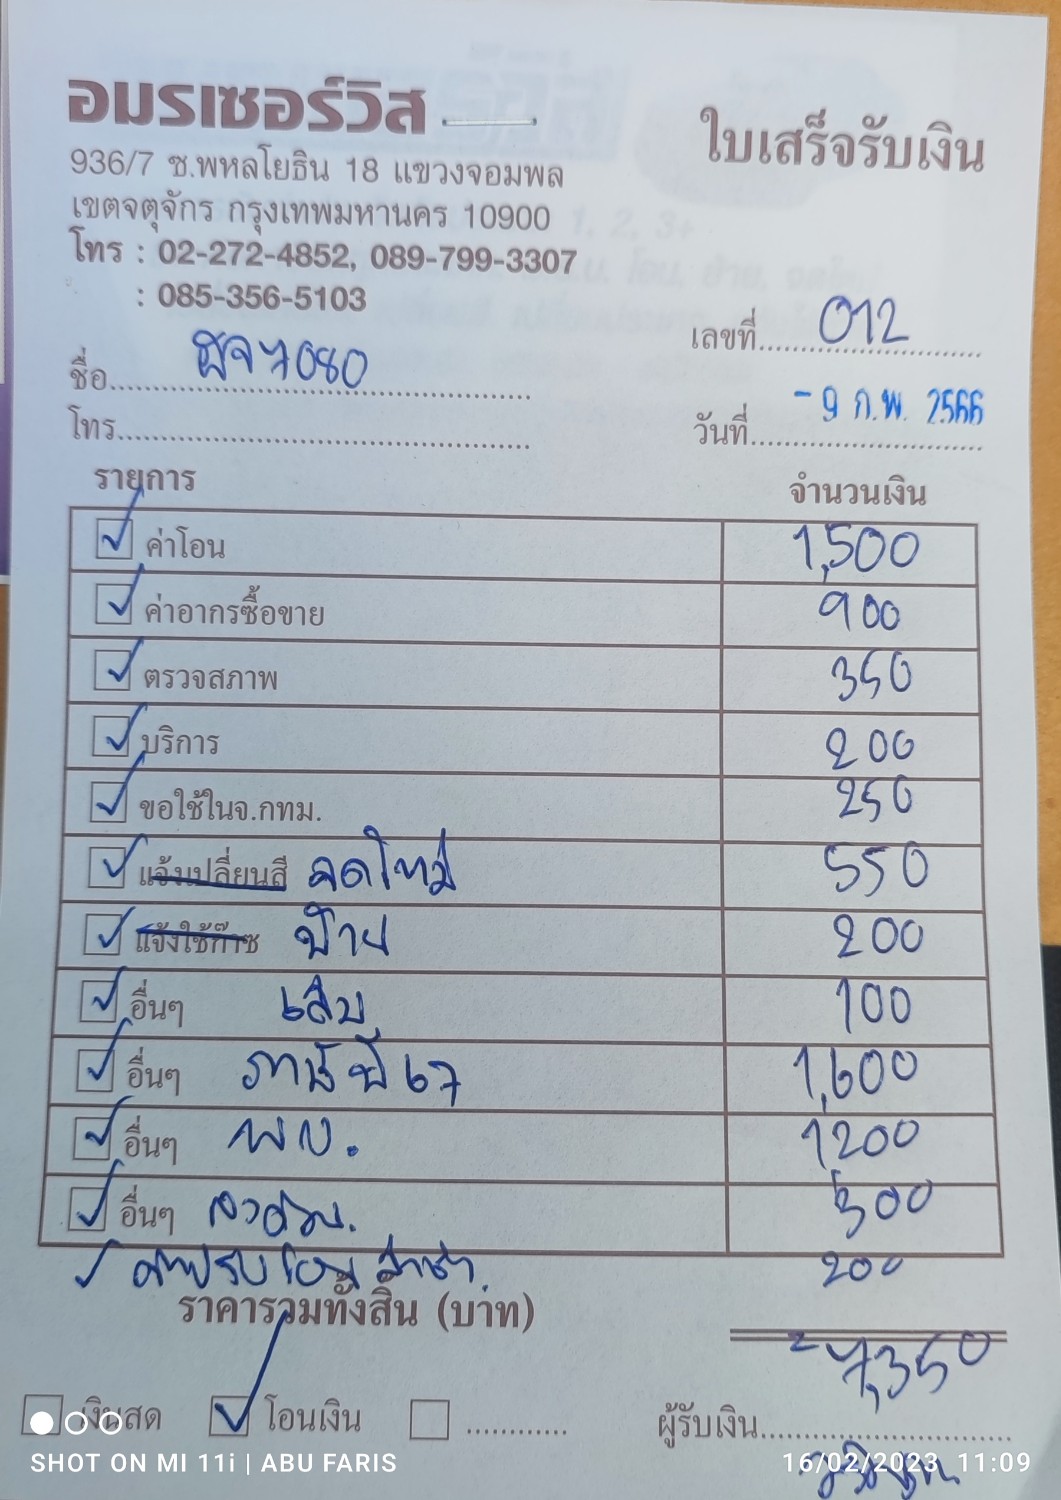 อมรเซอร์วิส
ใบเสร็จรับเงิน
936/7 ซ.พหลโยธิน 18 แขวงจอมพล
เขตจตุจักร กรุงเทพมหานคร 10900
โทร : 02-272-4852, 089-799-3307
: 085-356-5103
เลขที่ 012
ชื่อ 7080
วันที่ - 9 ก.พ. 2566
โทร
รายการ จำนวนเงิน
ค่าโอน 1,500
ค่าอากรซื้อขาย 900
ตรวจสภาพ 350
บริการ 200
ขอใช้ในจ.กทม. 250
แจ้งเปลี่ยนสี จดใหม่ 550
แจ้งใช้ก๊าซ ป้าย 200
อื่นๆ เล่ม 100
อื่นๆ ภาษีปี 67 1,600
อื่นๆ พบ. 1200
อื่นๆ 300
ค่าปรับโอนล่าช้า 200
ราคารวมทั้งสิ้น (บาท)
7,350
เงินสด โอนเงิน
ผู้รับเงิน
SHOT ON MI 11i | ABU FARIS
16/02/2023 11:09